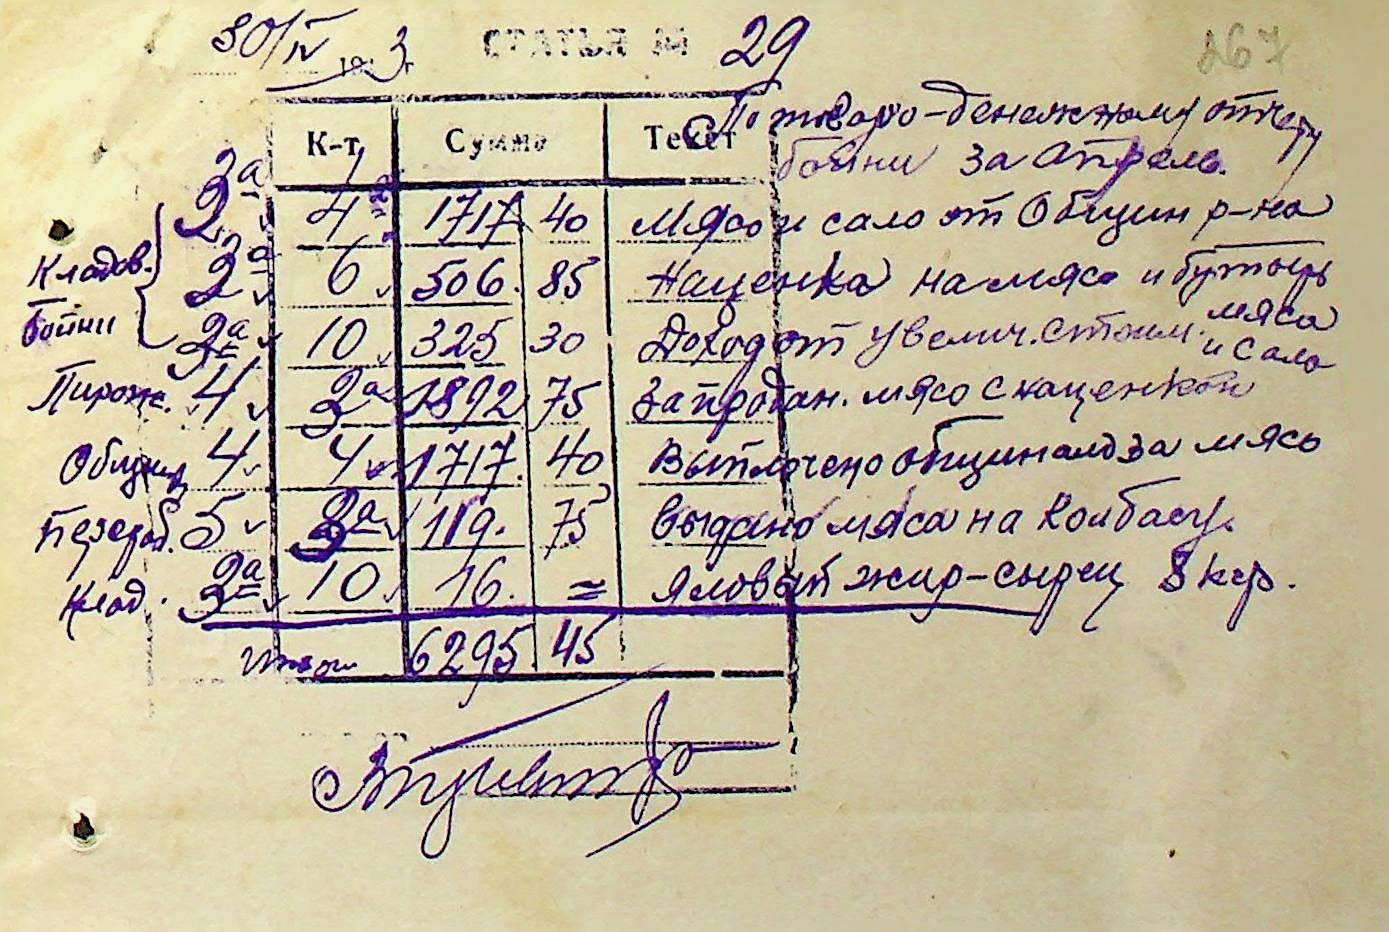 30/IV 1943 г. СТАТЬЯ № 29
267
По товаро-денежному отчету
К-т Сумма Текст
бойни за Апрель.
Кладов. бойни
3а 4а 1717 40 Мясо и сало от Общин р-на
3а 6 506. 85 Наценка на мясо и бутыр
3а 10 325 30 Доход от увелич. стоим. мяса и сала
Пирож. 4 3а 1892 75 За продан. мясо с наценкой
Общин 4 4 1717. 40 Выплочено общинам за мясо
Перераб. 5 3а 119. 75 Выдано мяса на колбасу.
Клад. 3а 10 16. = Яловый жир-сырец 8 кгр.
Итого 6295 45